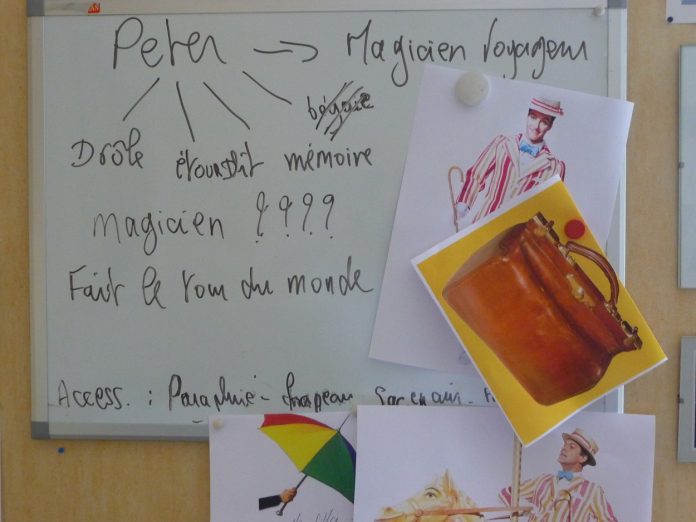 Peter → Magicien Voyageur
bégaie
Drôle étourdit mémoire
Magicien ????
Fait le tour du monde
Access. : Parapluie - Drapeau Sac en cuir -